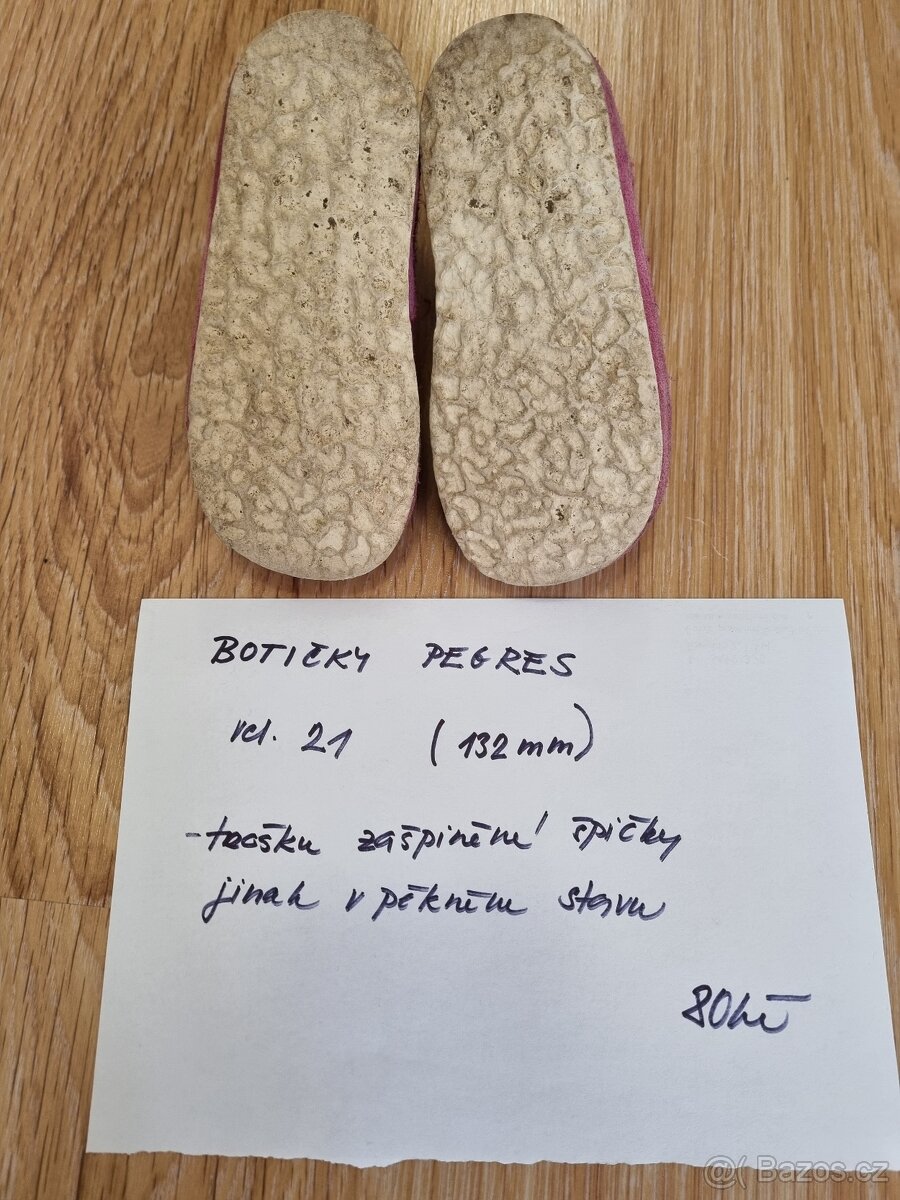 BOTIČKY PEGRES
vel. 21 (132mm)
-trošku zašpinění špičky
jinak v pěkném stavu
80kč
@( Bazos.cz